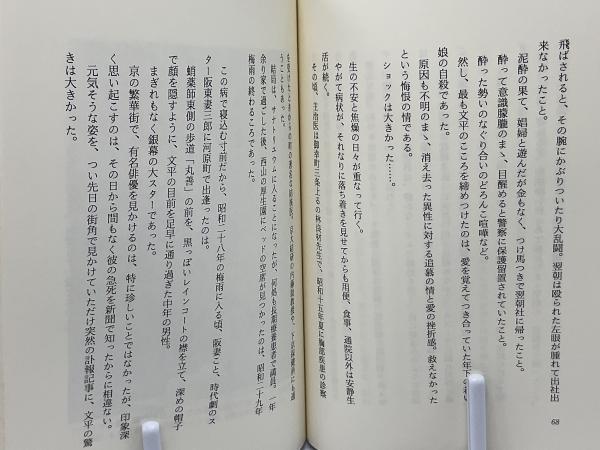 飛ばされると、その腕にかぶりついたり大乱闘。翌朝は殴られた左眼が腫れて出社出
来なかったこと。
泥酔の果て、娼婦と遊んだが金もなく、つけ馬つきで翌朝社に帰ったこと。
酔って意識朦朧のまゝ、目醒めると警察に保護留置されていたこと。
酔った勢いのなぐり合いのどろんこ喧嘩など。
然し、最も文平のこころを締めつけたのは、愛を覚えてつき合っていた年下の若い
娘の自殺であった。
原因も不明のまゝ、消え去った異性に対する追慕の情と愛の挫折感。救えなかった
という悔恨の情である。
ショックは大きかった……。
68
生の不安と焦燥の日々が重なって行く。
やがて病状が、それなりに落ち着きを見せてからも用便、食事、通院以外は安静生
活が続く。
その頃、主治医は御幸町三条上るの林良材先生で、昭和十五年夏に胸部疾患の診察
うこともあった。
結局は、サナトリュウムに入ることになったが、何処も長期療養患者で満員。一年
余り家で過ごした後、西山の厚生園にベッドの空席が見つかったのは、昭和二十九年
梅雨の終わるころであった。
この病で寝込む寸前だから、昭和二十八年の梅雨に入る頃、阪妻こと、時代劇のス
ター阪東妻三郎に河原町で出逢ったのは。
蛸薬師東側の歩道「丸善」の前を、黒っぽいレインコートの襟を立て、深めの帽子
で顔を隠すように、文平の目前を足早に通り過ぎた中年の男性。
まぎれもなく銀幕の大スターであった。
京の繁華街で、有名俳優を見かけるのは、特に珍しいことではなかったが、印象深
く思い起こすのは、その日から間もなく彼の急死を新聞で知ったからに相違ない。
元気そうな姿を、つい先日の街角で見かけていただけ突然の訃報記事に、文平の驚
きは大きかった。